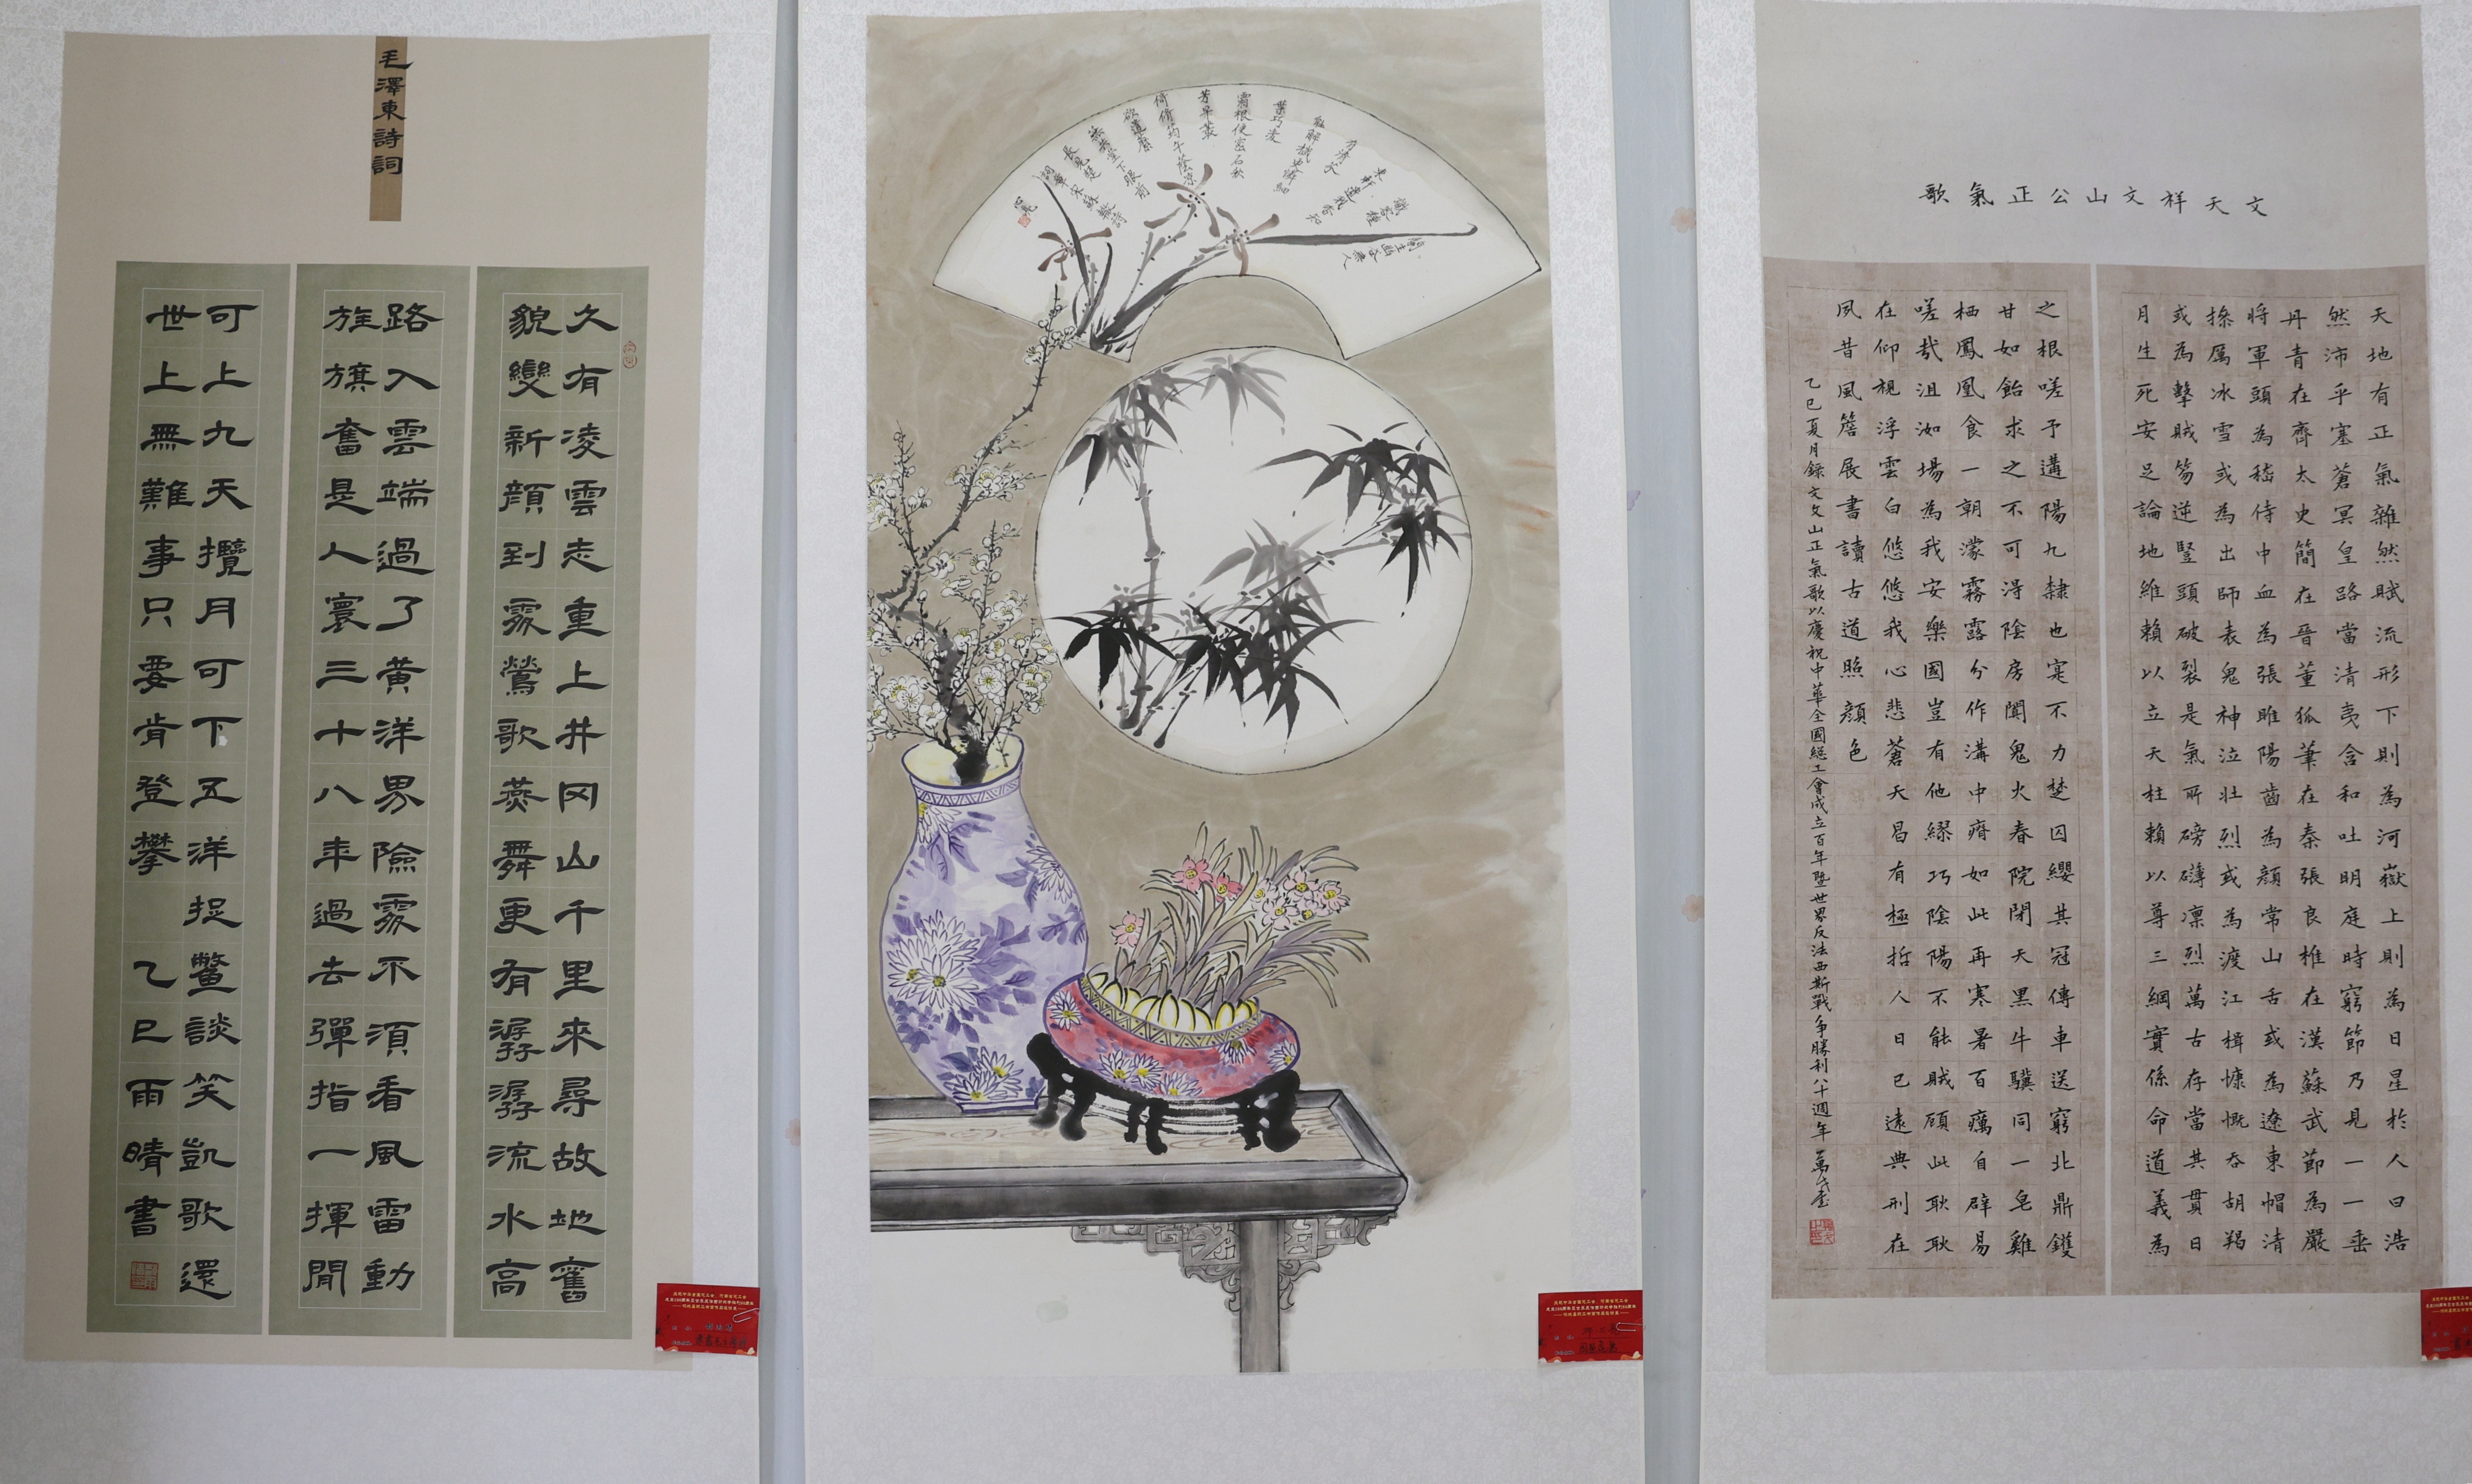 毛澤東詩詞
久有凌雲志重上井冈山千里來尋故地舊
貌變新顏到處鶯歌燕舞更有潺潺流水高
路入雲端過了黄洋界險處不須看風雷動
旌旗奮是人寰三十八年過去彈指一揮間
可上九天攬月可下五洋捉鱉談笑凱歌還
世上無難事只要肯登攀 乙巳雨晴書
蘭生幽谷無人
識客種
東軒遺我香知
有清芬
能解穢更憐細
葉巧凌
霜根便密石秋
芳早叢
倚脩筠午蔭涼
欲遣蘼
蕪共堂下眼前
長見楚
詞章宋蘇轍詩
文天祥文山公正氣歌
天地有正氣雜然賦流形下則為河嶽上則為日星於人曰浩
然沛乎塞蒼冥皇路當清夷含和吐明庭時窮節乃見一一垂
丹青在齊太史簡在晉董狐筆在秦張良椎在漢蘇武節為嚴
將軍頭為嵇侍中血為張睢陽齒為顏常山舌或為遼東帽清
操厲冰雪或為出師表鬼神泣壯烈或為渡江楫慷慨吞胡羯
或為擊賊笏逆豎頭破裂是氣所磅礴凜烈萬古存當其貫日
月生死安足論地維賴以立天柱賴以尊三綱實係命道義為
之根嗟予遘陽九隸也寔不力楚囚纓其冠傳車送窮北鼎鑊
甘如飴求之不可得陰房闃鬼火春院閉天黑牛驥同一皂雞
栖鳳凰食一朝濛霧露分作溝中瘠如此再寒暑百癘自辟易
嗟哉沮洳場為我安樂國豈有他繆巧陰陽不能賊顧此耿耿
在仰視浮雲白悠悠我心悲蒼天曷有極哲人日已遠典刑在
夙昔風簷展書讀古道照顏色
乙巳夏月録文文山正氣歌以慶祝中華全國總工會成立百年暨世界反法西斯戰爭勝利八十週年